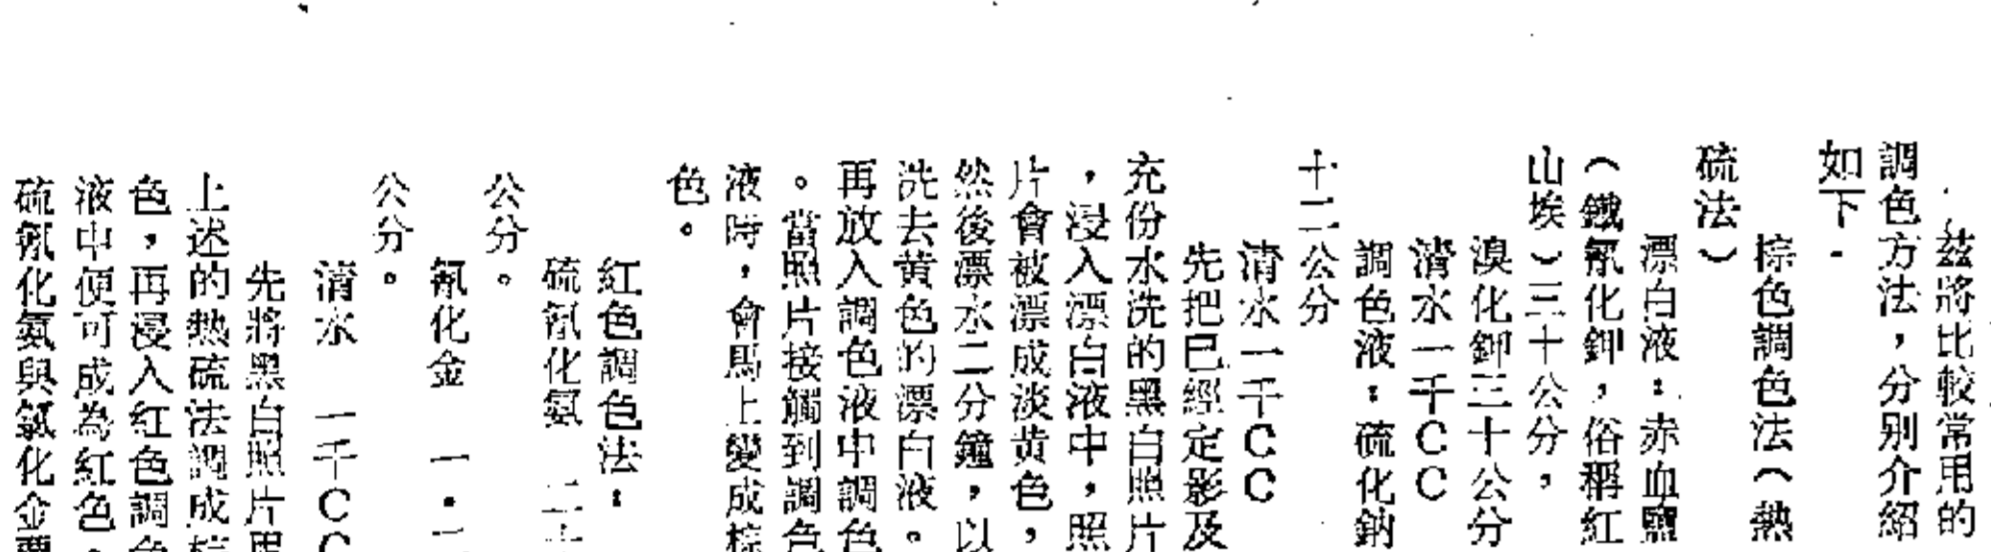 茲將比較常用的
調色方法，分別介紹
如下：
棕色調色法（熱
硫法）
漂白液：赤血鹽
（鐵氰化鉀，俗稱紅
山埃）三十公分，
溴化鉀三十公分
清水一千ＣＣ
調色液：硫化鈉
十二公分
清水一千ＣＣ
先把已經定影及
充份水洗的黑白照片
，浸入漂白液中，照
片會被漂成淡黄色，
然後漂水二分鐘，以
洗去黄色的漂白液。
再放入調色液中調色
。當照片接觸到調色
液時，會馬上變成棕
色。
紅色調色法：
硫氰化氨　二十
公分。
氰化金　一・二
公分。
清水　一千ＣＣ
先將黑白照片用
上述的熱硫法調成棕
色，再浸入紅色調色
液中便可成為紅色。
硫氰化氨與氯化金要